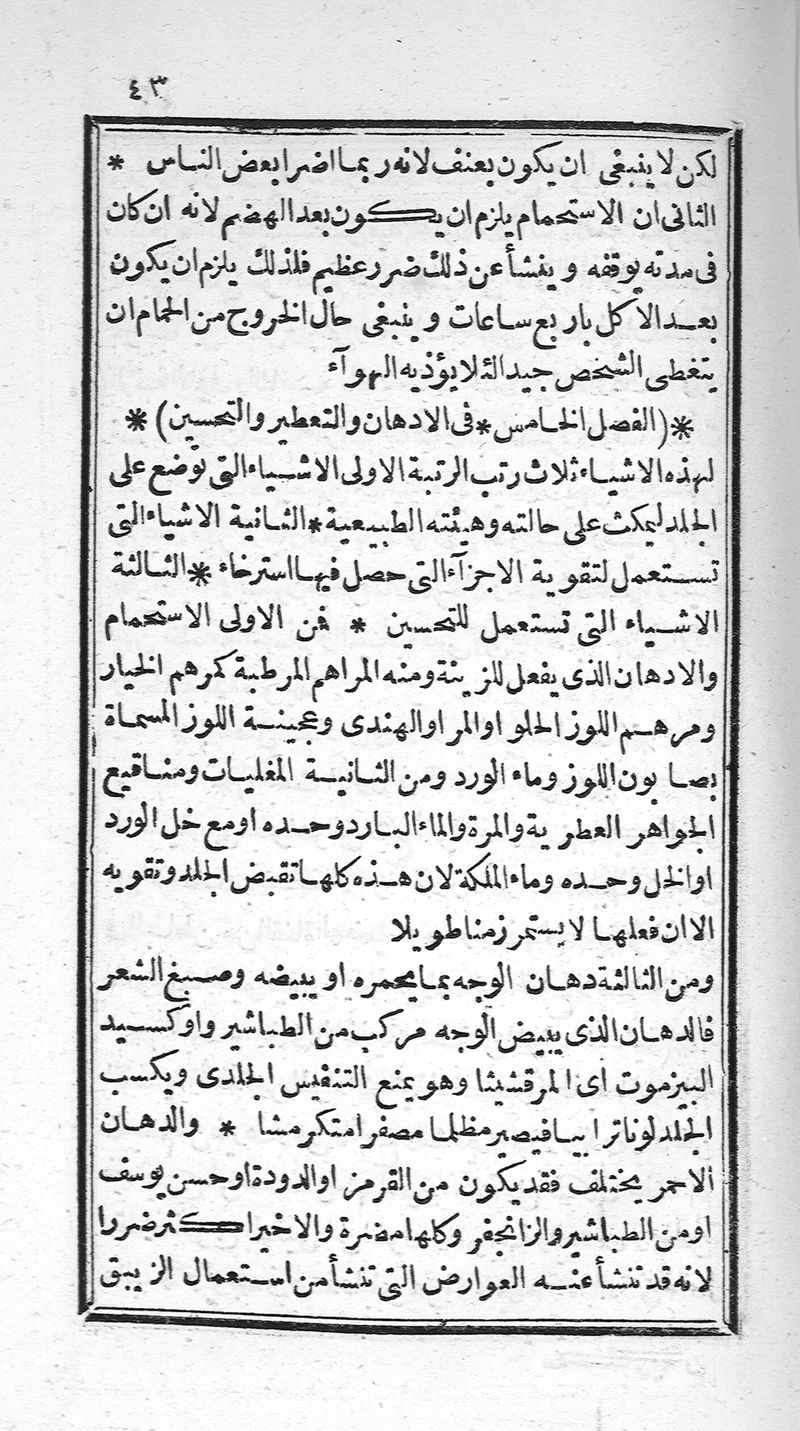 ٤٣
لكن لا ينبغى ان يكون بعنف لانه ربما اضرا بعض الناس *
الثانى ان الاستحمام يلزم ان يكون بعد الهضم لانه ان كان
فى مدته يوقفه وينشأ عن ذلك ضرر عظيم فلذلك يلزم ان يكون
بعد الاكل باربع ساعات وينبغى حال الخروج من الحمام ان
يتغطى الشخص جيدا لئلا يؤذيه الهوآء
*(الفصل الخامس * فى الادهان والتعطير والتحسين)*
لهذه الاشياء ثلاث رتب الرتبة الاولى الاشياء التى توضع على
الجلد ليمكث على حالته وهيئته الطبيعية * الثانية الاشياء التى
تستعمل لتقوية الاجزآء التى حصل فيها استرخاء * الثالثة
الاشياء التى تستعمل للتحسين * فمن الاولى الاستحمام
والادهان الذى يفعل للزينة ومنه المراهم المرطبة كمرهم الخيار
ومرهم اللوز الحلو او المر او الهندى وعجينة اللوز المسماة
بصابون اللوز وماء الورد ومن الثانية المغليات ومناقيع
الجواهر العطرية والمرة والماء البارد وحده او مع خل الورد
او الخل وحده وماء الملكة لان هذه كلها تقبض الجلد وتقويه
الا ان فعلها لا يستمر زمنا طويلا
ومن الثالثة دهان الوجه بما يحمره او يبيضه وصبغ الشعر
فالدهان الذى يبيض الوجه مركب من الطباشير واوكسيد
البيزموت اى المرقشيثا وهو يمنع التنفيس الجلدى ويكسب
الجلد لونا ترابيا فيصير مظلما مصفرا متكرمشا * والدهان
الاحمر يختلف فقد يكون من القرمز او الدودة او حسن يوسف
او من الطباشير والزانجفر وكلها مضرة والاخير اكثر ضررا
لانه قد تنشأ عنه العوارض التى تنشأ من استعمال الزيبق